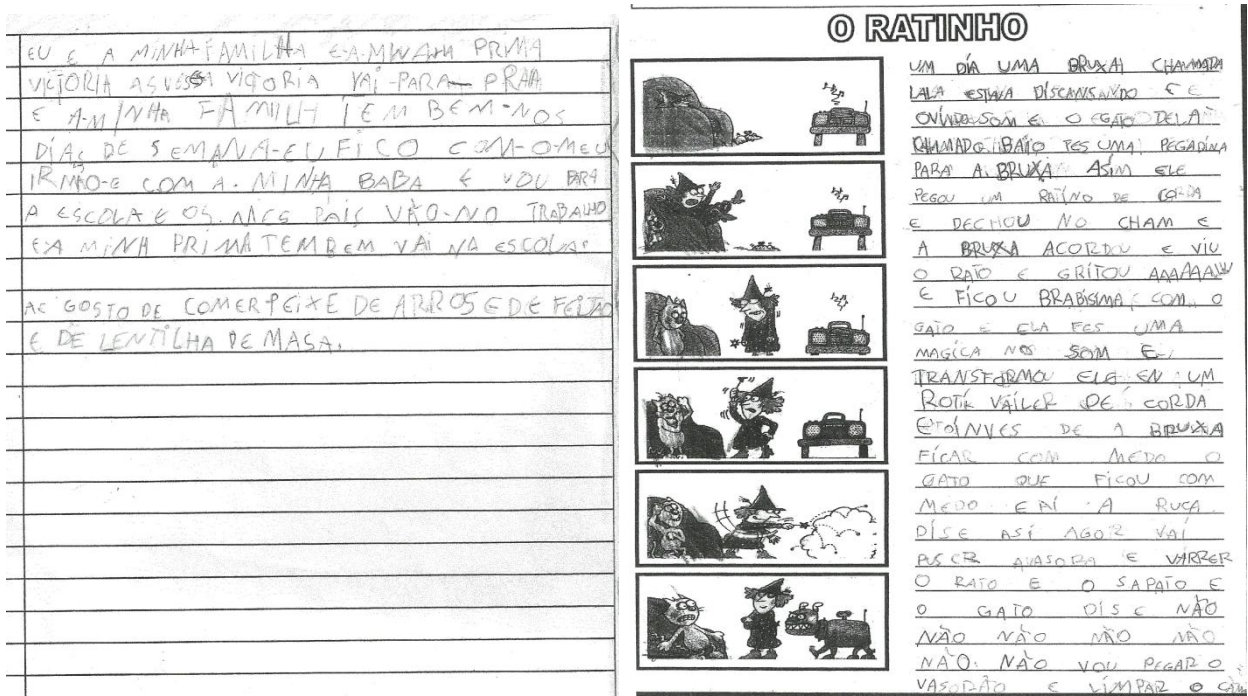 EU E A MINHA FAMILHA E-A-MINAHA PRIMA
VICTORIA AS VESES VICTORIA VAI-PARA PRAIA
E A-MINHA FAMILH TEM BEM-NOS
DÍAS DE SEMANA-EU FICO COM-O-MEU
IRMÃO-E COM A. MINHA BABA E VOU PARA
A ESCOLA E OS. MES PAIS VÃO-NO TRABALHO
E A MINHA PRIMA TEMBEM VAI NA ESCOLA.
GOSTO DE COMER PEIXE DE ARROS E DE FEIJAO
E DE LENTILHA DE MASA.
O RATINHO
UM DÍA UMA BRUXA CHAMADA
LALA ESTAVA DISCANSANDO E
OVINDO SOM E O GATO DELA
CHAMADO BAIO FES UMA PEGADINA
PARA A BRUXA ASIM ELE
PEGOU UM RATINO DE CORDA
E DECHOU NO CHAM E
A BRUXA ACORDOU E VIU
O RATO E GRITOU
E FICOU BRABISIMA COM O
GATO E ELA FES UMA
MAGICA NO SOM E
TRANSFORMOU ELE EN UM
ROTIK VAILER DE CORDA
E TOINVES DE A BRUXA
FICAR COM MEDO O
GATO QUE FICOU COM
MEDO E AÍ A RUCA
DISE ASI AGOR VAI
PUSCR AVASORA E VARRER
O RATO E O SAPATO E
O GATO DISE NÃO
NÃO NÃO NÃO NÃO
NÃO. NÃO VOU PEGAR O
VASORÃO E LIMPAR O